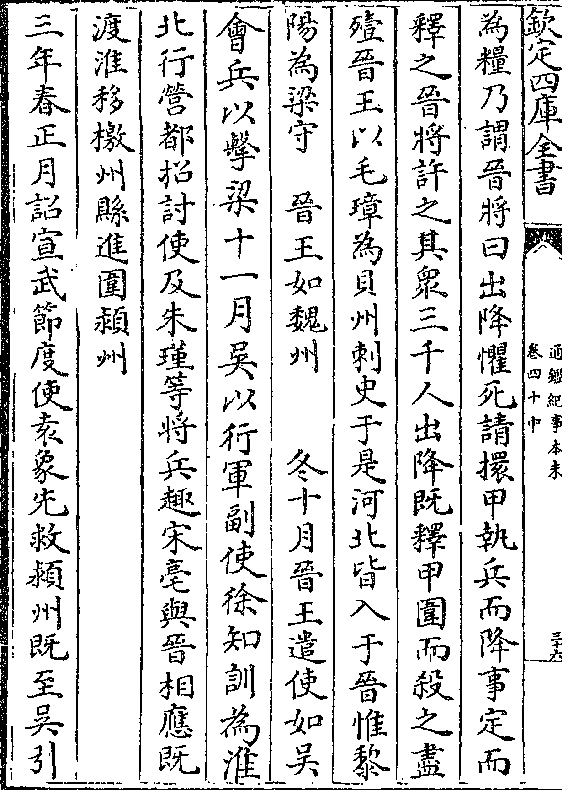 欽定四庫全書
通鑑紀事本末
卷四十中
三十六
為糧乃謂晉將曰出降懼死請擐甲執兵而降事定而
釋之晉將許之其衆三千人出降既釋甲圍而殺之盡
殪晉王以毛璋為貝州刺史于是河北皆入于晉惟黎
陽為梁守 晉王如魏州 冬十月晉王遣使如吳
會兵以擊梁十一月吳以行軍副使徐知訓為淮
北行營都招討使及朱瑾等將兵趣宋亳與晉相應既
渡淮移檄州縣進圍潁州
三年春正月詔宣武節度使袁象先救潁州既至吳引